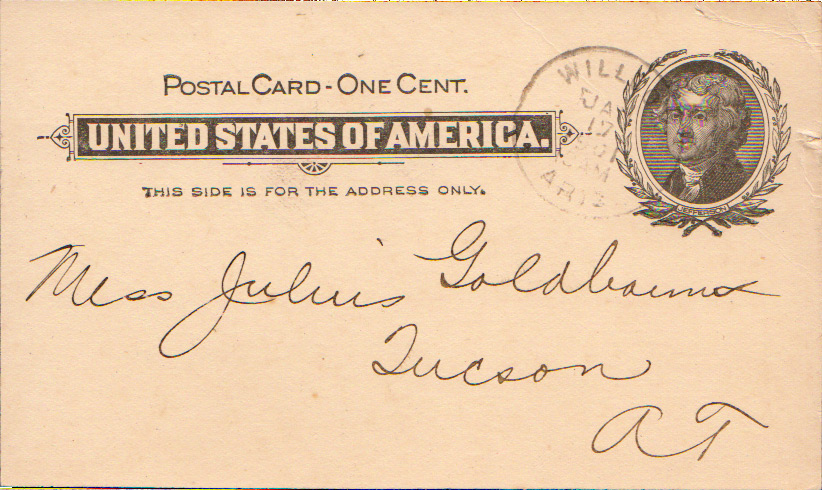 POSTAL CARD - ONE CENT.
UNITED STATES OF AMERICA.
THIS SIDE IS FOR THE ADDRESS ONLY.
WILL
JA
17
ARIZ
JEFFERSON
Mess Julius Goldbaum
Tucson
A T